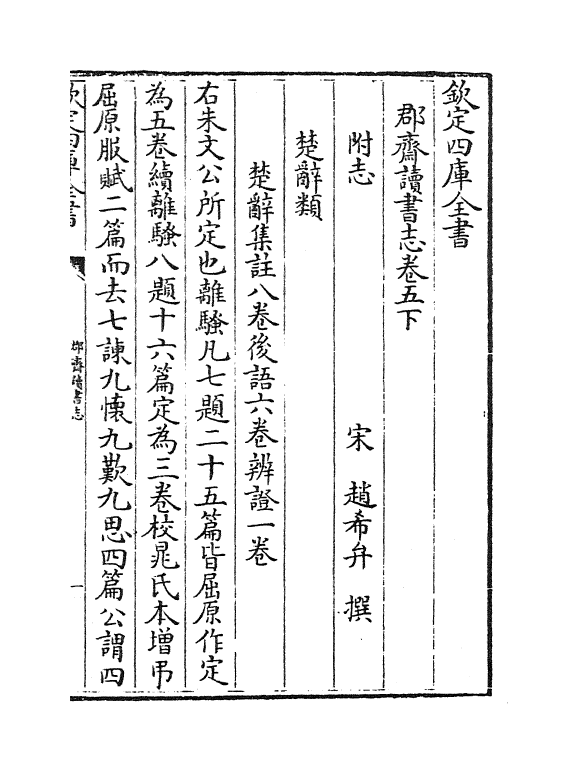 欽定四庫全書
郡齋讀書志卷五下
附志　宋　趙希弁　撰
楚辭類
楚辭集註八卷後語六卷辨證一卷
右朱文公所定也離騷凡七題二十五篇皆屈原作定
為五卷續離騷八題十六篇定為三卷校晁氏本增弔
屈原服賦二篇而去七諫九懷九歎九思四篇公謂四
欽定四庫全書
郡齋讀書志
一